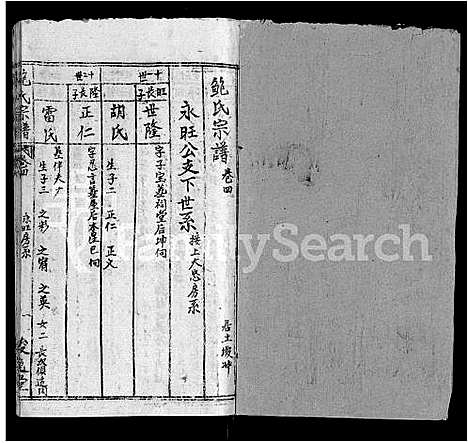 鮑氏宗譜 卷四
永旺公支下世系 接上大忠房系
居土坡冲
十一世
旺長子
世隆 字子宝葬祠堂后坤向
胡氏 生子二 正仁 正文
十二世
隆長子
正仁 字忍言葬屋后本隍巳向
雷氏 葬伴夫
生子三 之彩 之甯 之英 女二
鮑氏宗譜 卷四
永旺房系
一
FamilySearch